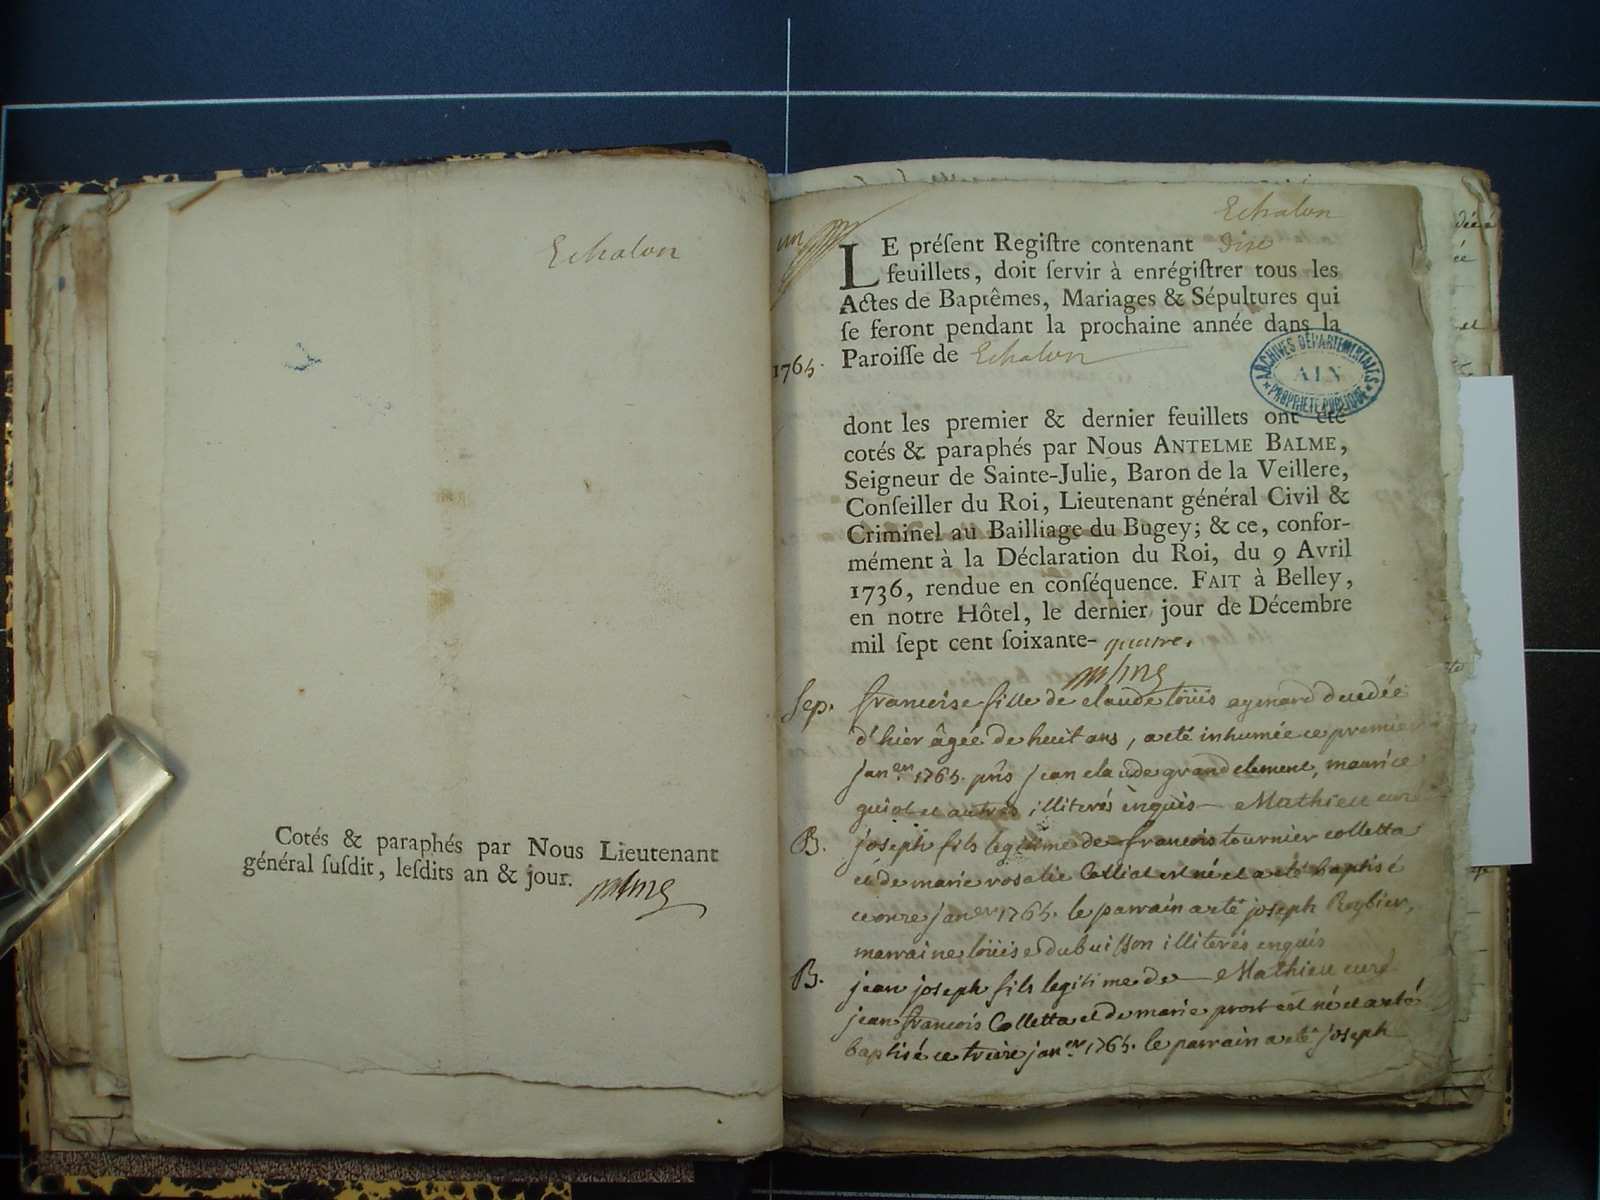 Echalon
Cotés & paraphés par Nous Lieutenant
général ſuſdit, leſdits an & jour.
Echalon
un
LE préſent Regiſtre contenant dix
feuillets, doit ſervir à enrégiſtrer tous les
Actes de Baptêmes, Mariages & Sépultures qui
ſe feront pendant la prochaine année dans la
1765. Paroiſſe de Echalon
ARCHIVES DÉPARTEMENTALES
AIN
PROPRIÉTÉ PUBLIQUE
dont les premier & dernier feuillets ont été
cotés & paraphés par Nous ANTELME BALME,
Seigneur de Sainte-Julie, Baron de la Veillere,
Conſeiller du Roi, Lieutenant général Civil &
Criminel au Bailliage du Bugey; & ce, confor-
mément à la Déclaration du Roi, du 9 Avril
1736, rendue en conſéquence. FAIT à Belley,
en notre Hôtel, le dernier jour de Décembre
mil ſept cent ſoixante-quatre.
Sep. francoise fille de claude loüis aymard decedée
d'hier âgée de huit ans, a eté inhumée ce premier
janer 1765. pñs jean claude grandclement, maurice
guiot et autres illiterés enquis Mathieu curé
B. joseph fils legitime de francois tournier colletta
et de marie rosalie Colliat est né et a eté baptisé
ce onze janer 1765. le parrain a eté joseph Roybier,
marraine loüise dubuisson illiterés enquis
Mathieu curé
B. jean joseph fils legitime de
jean francois Colletta et de marie prost est né et a eté
baptisé ce treize janer 1765. le parrain a eté joseph